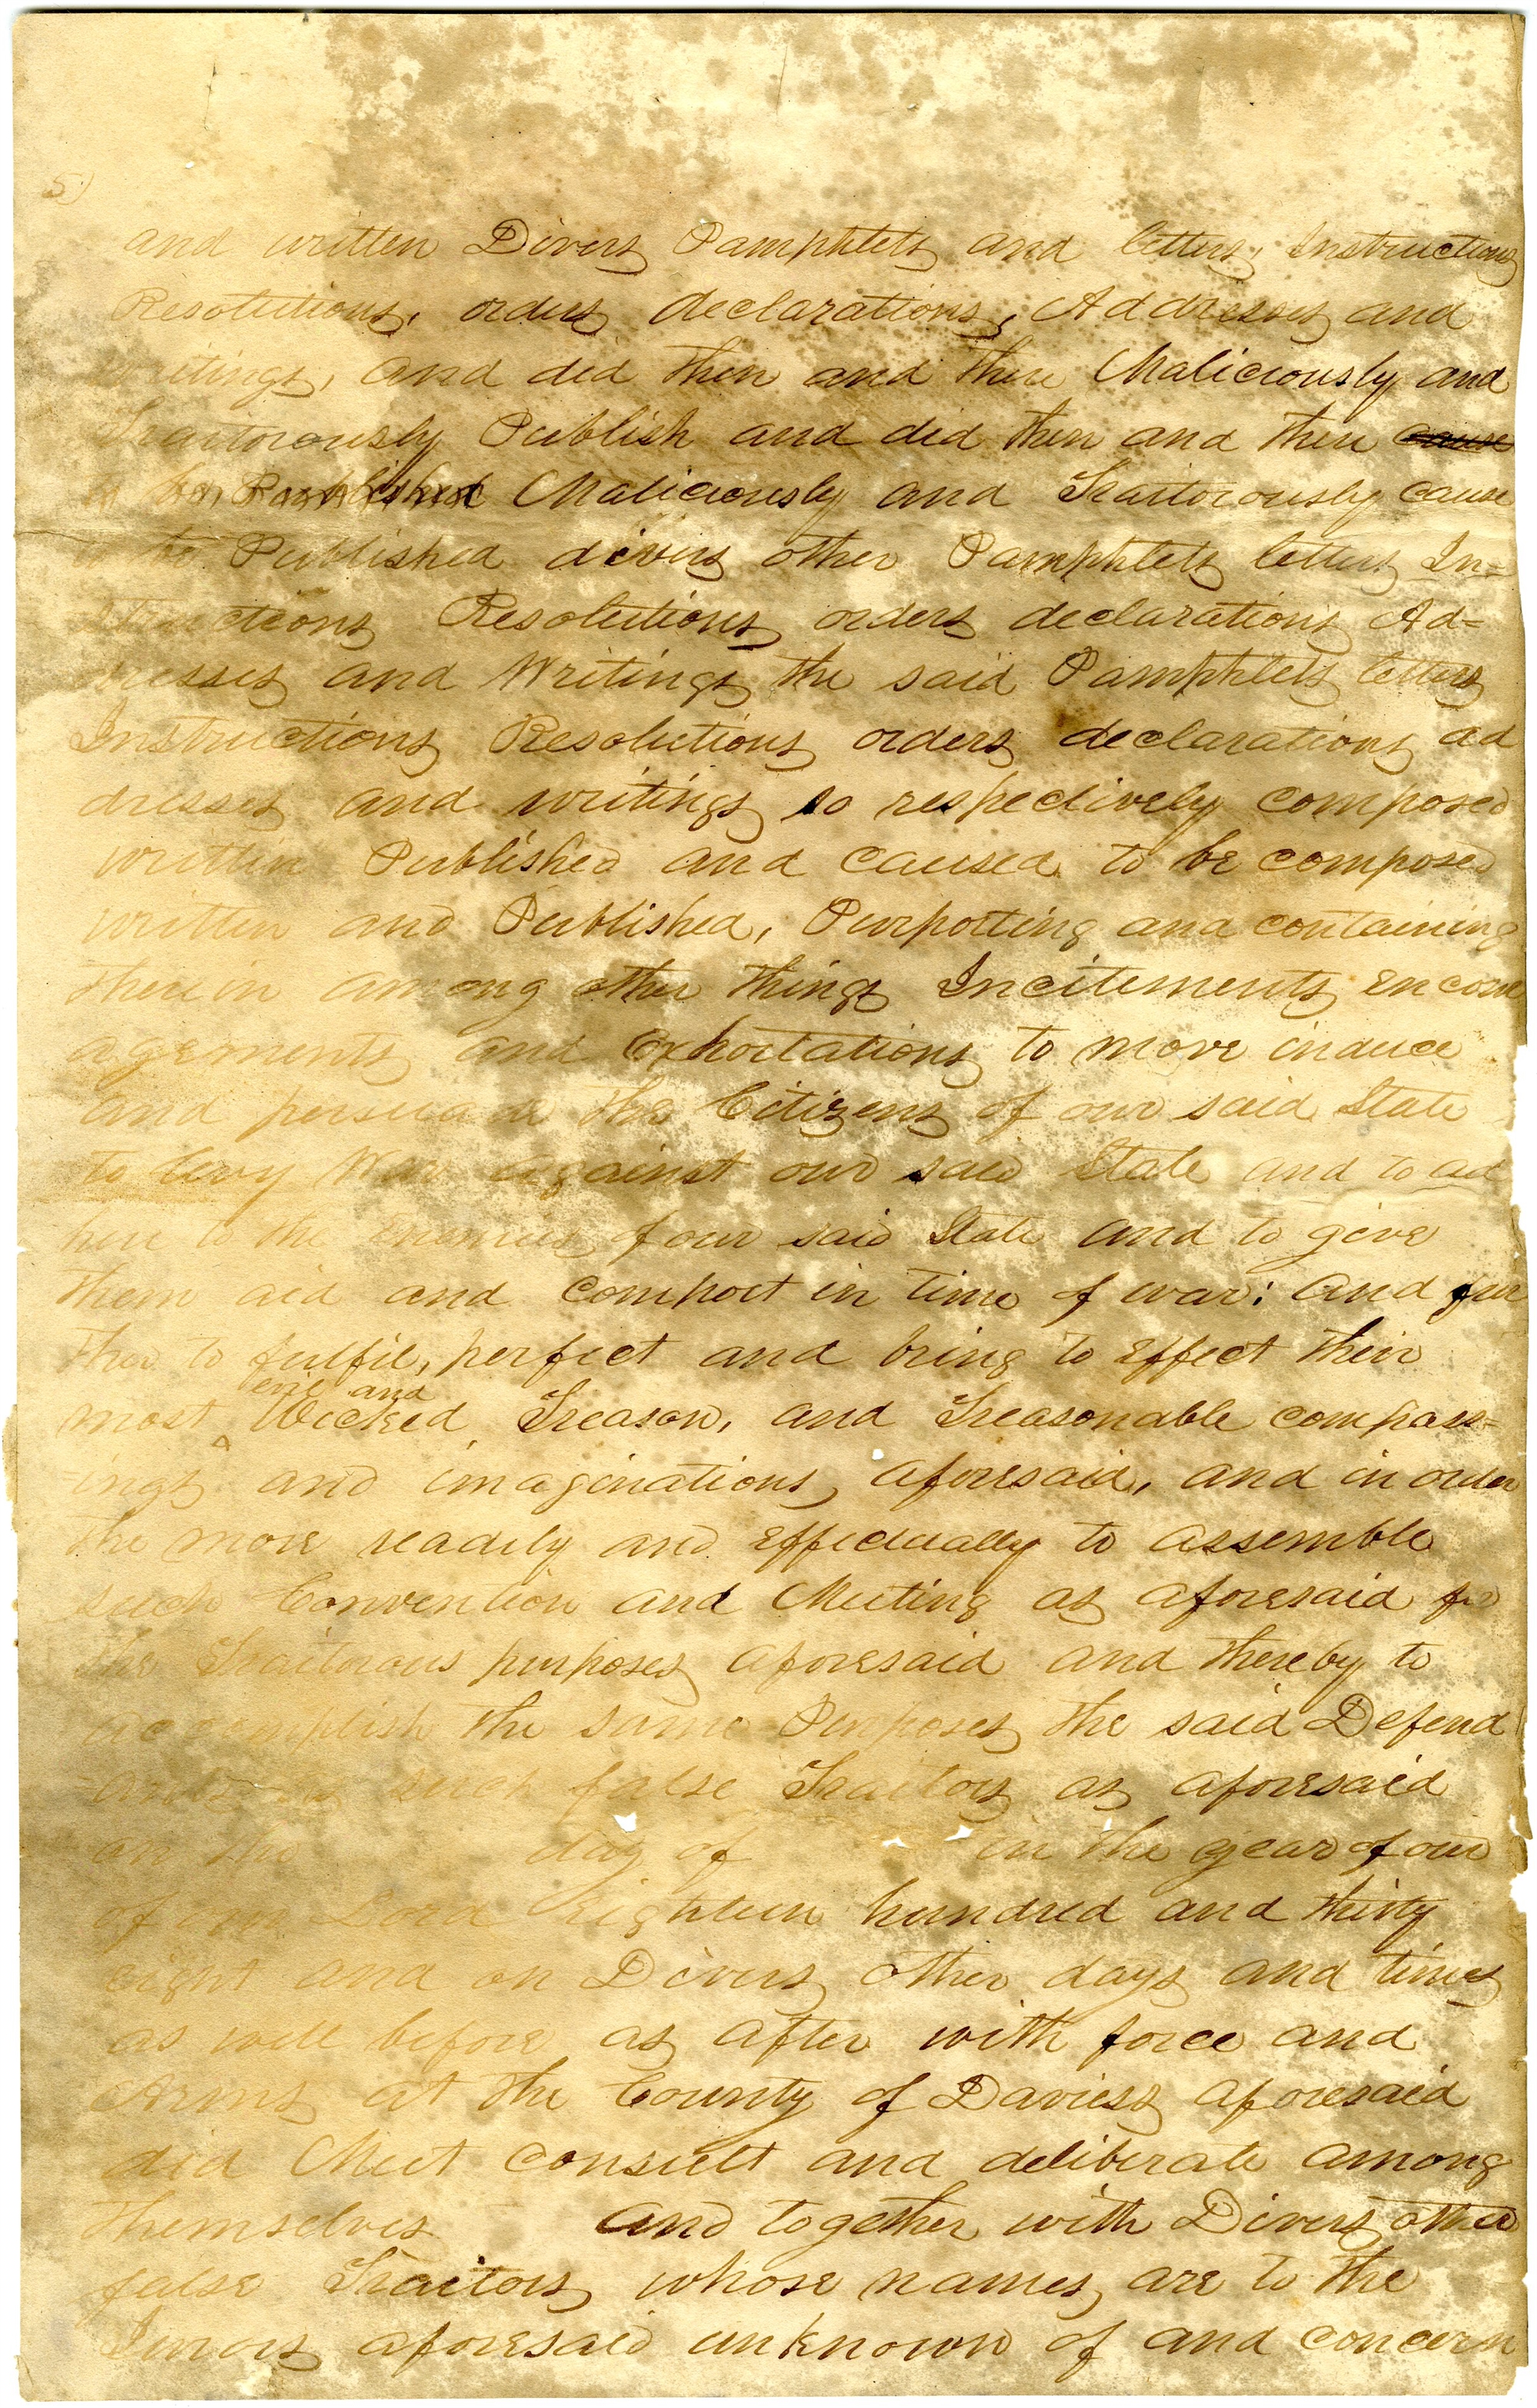 5)
and written Divers Pamphlets and letters, Instructions
Resolutions, orders declarations, Addresses and
writings, and did then and there Maliciously and
Traitorously Publish and did then and there cause
to be Published Maliciously and Traitorously cause
to be Published divers other Pamphlets letters In=
structions Resolutions orders declarations Ad=
dresses and Writings the said Pamphlets letters
Instructions Resolutions orders declarations ad
dresses and writings so respectively composed
written Published and caused to be composed
written and Published, Purporting and containing
therein among other things Incitements encour
agements and Exhortations to move induce
and persuade the Citizens of our said State
to levy War against our said State and to ad
here to the Enemies of our said State and to give
them aid and comport in time of war: and fur
ther to fulfil, perfect and bring to Effect their
evil and
most Wicked Treason, and Treasonable compass=
=ings and imaginations, aforesaid, and in order
the more readily and Effectually to assemble
such Convention and Meeting as aforesaid for
the Traitorous purposes aforesaid and thereby to
accomplish the same Purposes the said Defend
=ants as such false Traitors as aforesaid
on the day of in the year of our
of our Lord Eighteen hundred and thirty
eight and on Divers other days and times
as well before as after with force and
Arms at the County of Daviess aforesaid
did Meet consult and deliberate among
themselves and together with Divers other
false Traitors whose names are to the
Jurors aforesaid unknown of and concern